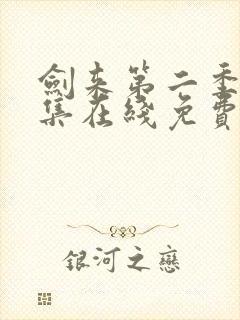 劍来第二季
集在綫免費
銀河之戀